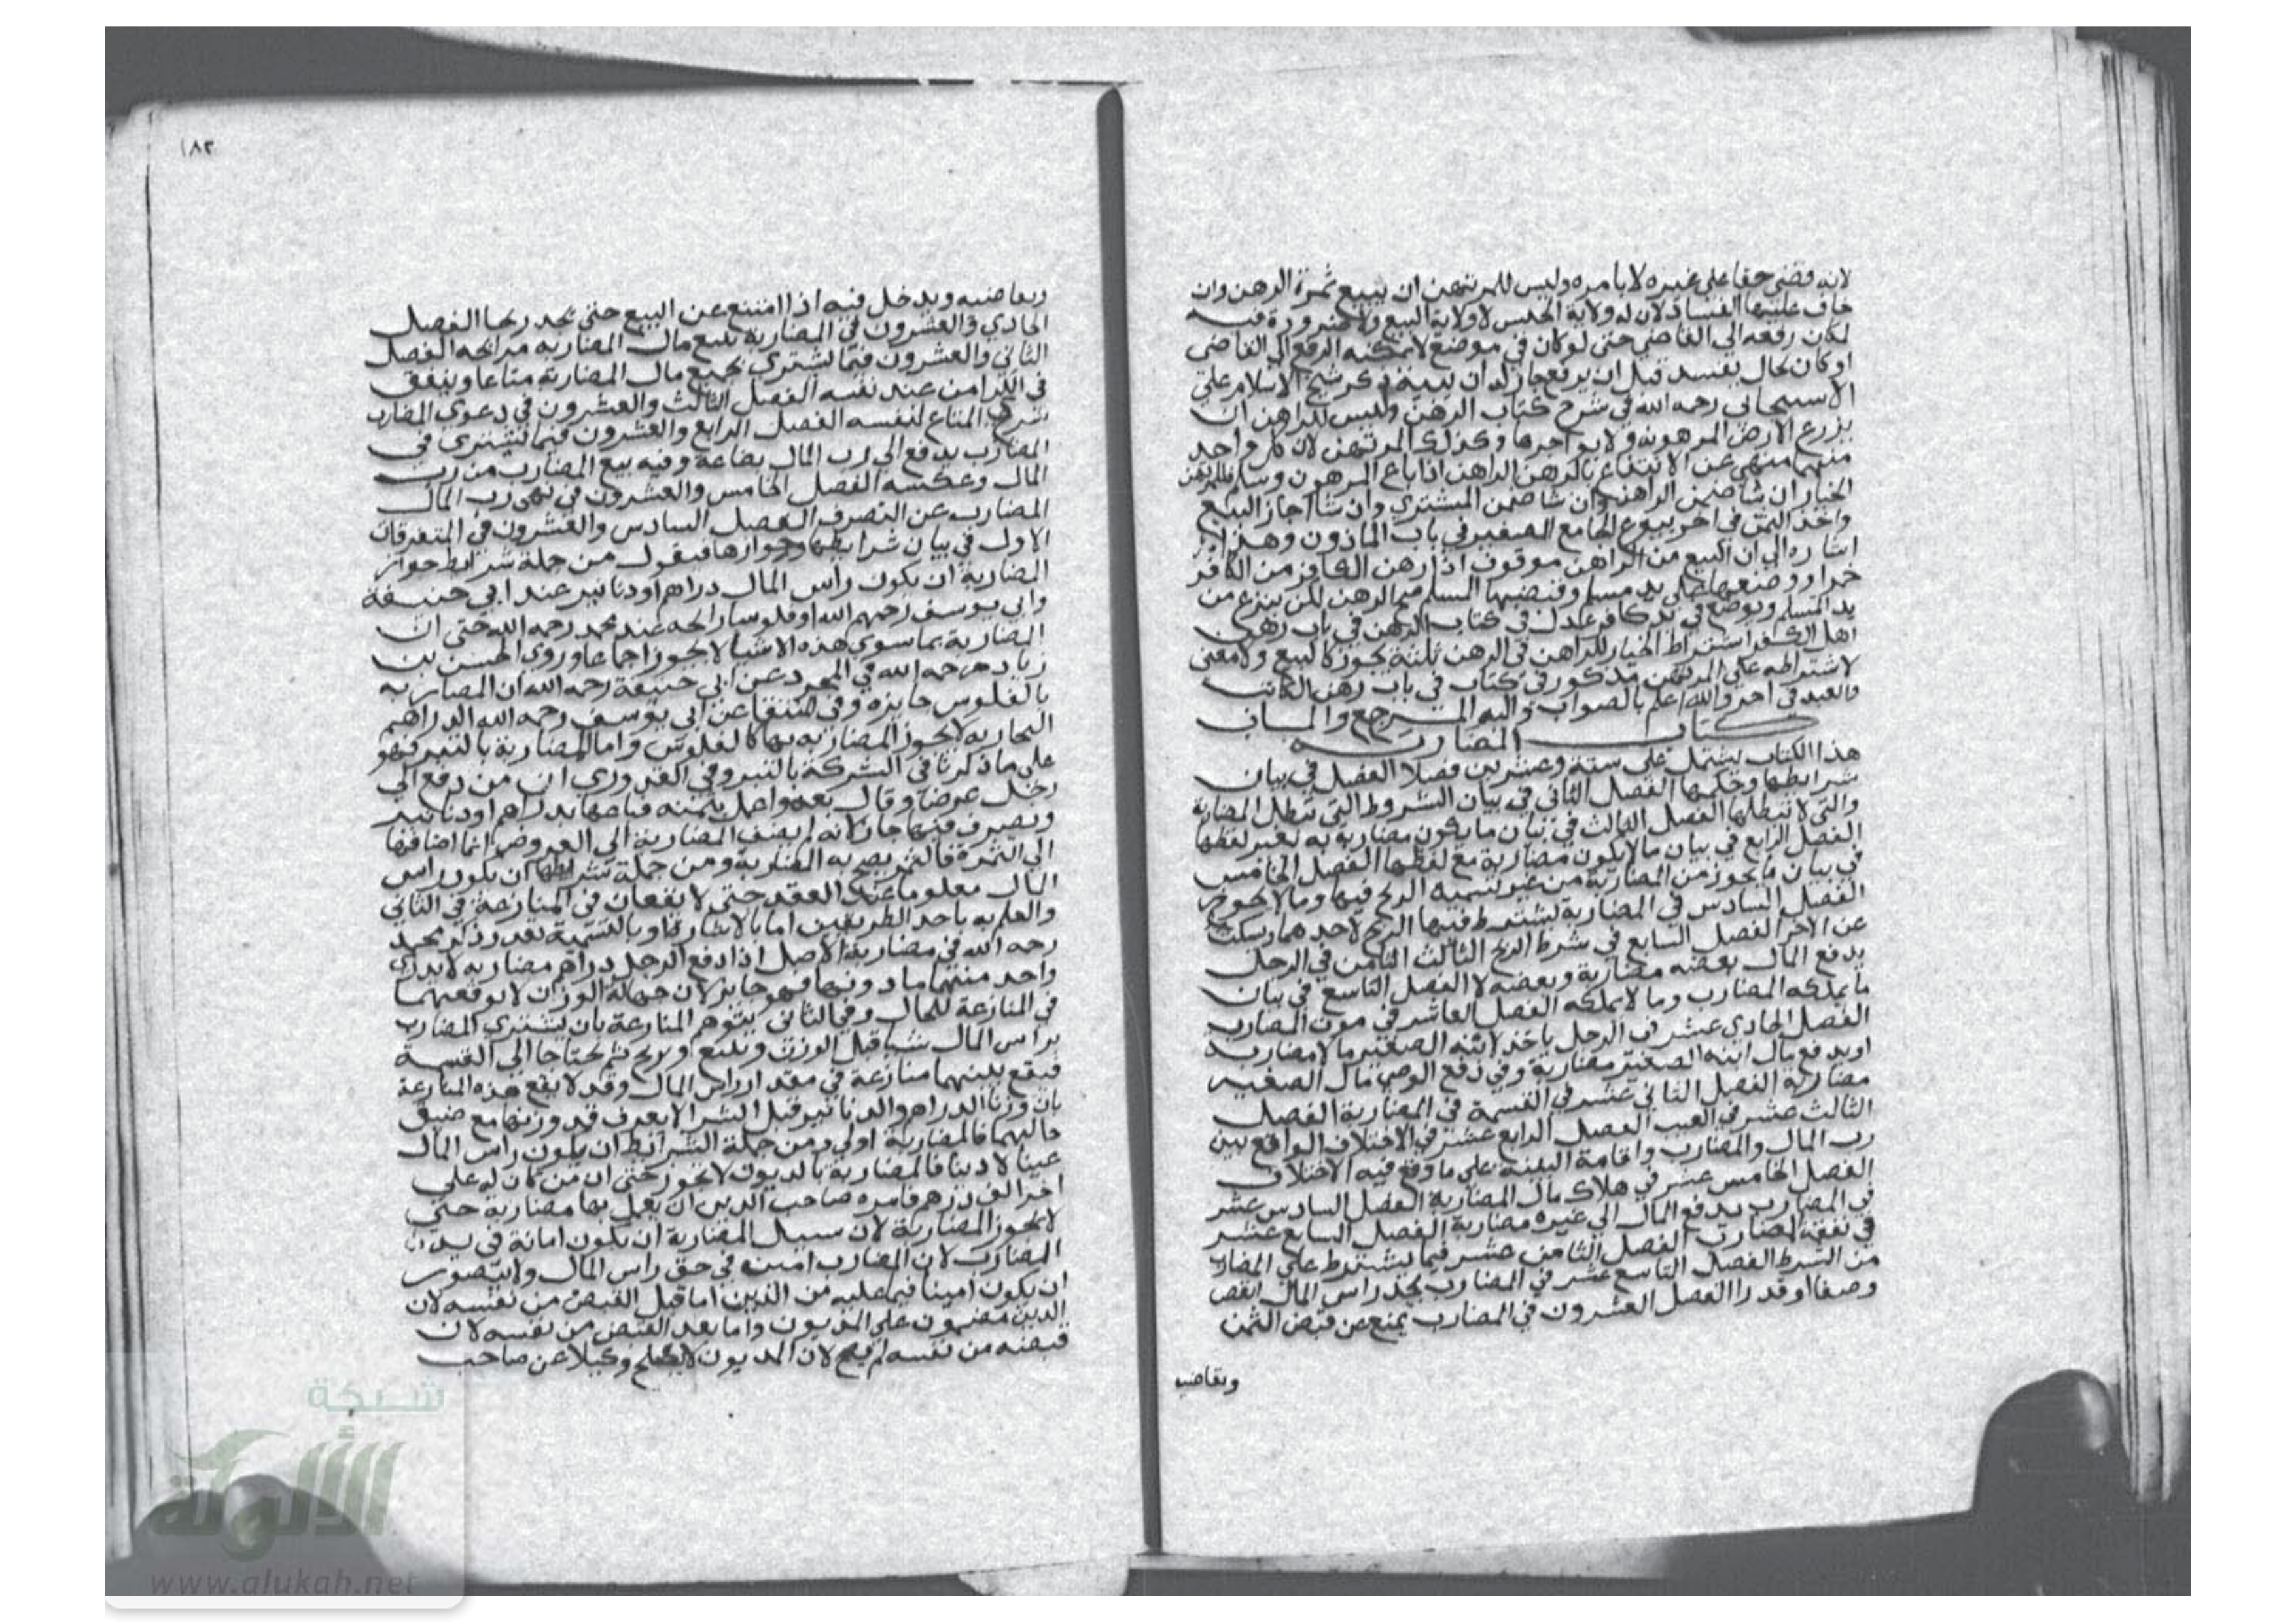 لانه قضى حقا على غيره لا بامره وليس للمرتهن ان يبيع ثمرة الرهن وان
خاف عليها الفساد لان له ولاية الحبس لا ولاية البيع ولا ضرورة فيه
لمكان رفعه الى القاضي حتى لو كان في موضع لا يمكنه الرفع الى القاضي
او كان بحال يفسد قبل ان يرفع جاز له ان يبيعه ذكر شيخ الاسلام علي
الاسبيجابي رحمه الله في شرح كتاب الرهن وليس للراهن ان
يزرع الارض المرهونة ولا يواجرها وكذلك المرتهن لان كل واحد
منهما منهي عن الانتفاع بالرهن الراهن اذا باع المرهون وسلم فللمرتهن
الخيار ان شا ضمن الراهن وان شا ضمن المشتري وان شا اجاز البيع
واخذ الثمن في اخر بيوع الجامع الصغير في باب الماذون وهذا
اشارة الى ان البيع من الراهن موقوف اذا رهن الكافر من الكافر
خمرا ووضعها على يد مسلم وقبضها المسلم الرهن لكن ينزع من
يد المسلم ويوضع في يد كافر عدل في كتاب الرهن في باب رهن
اهل الكفر اشتراط الخيار للراهن في الرهن ثلثة يجوز كالبيع ولا معنى
لاشتراطه على المرتهن مذكور في كتاب في باب رهن المكاتب
والعبد في اخره والله اعلم بالصواب واليه المرجع والماب
كتاب المضاربة
هذا الكتاب يشتمل على ستة وعشرين فصلا الفصل في بيان
شرايطها وحكمها الفصل الثاني في بيان الشروط التي تبطل المضاربة
والتي لا تبطلها الفصل الثالث في بيان ما يكون مضاربة به لغير لفظها
الفصل الرابع في بيان ما لا يكون مضاربة مع لفظها الفصل الخامس
في بيان ما يجوز من المضاربة من غير تسمية الربح فيها وما لا يجوز
الفصل السادس في المضاربة يشترط فيها الربح لاحدهما ويسكت
عن الاخر الفصل السابع في شرط الربح الثالث الثامن في الرجل
يدفع المال بعضه مضاربة وبعضه لا الفصل التاسع في بيان
ما يملكه المضارب وما لا يملكه الفصل العاشر في موت المضارب
الفصل الحادي عشر في الرجل ياخذ لابنه الصغير مالا مضاربة
او يدفع مال ابنه الصغير مضاربة وفي دفع الوصي مال الصغير
مضاربة الفصل الثاني عشر في القسمة في المضاربة الفصل
الثالث عشر في العيب الفصل الرابع عشر في الاختلاف الواقع بين
رب المال والمضارب واقامة البينة على ما وقع فيه الاختلاف
الفصل الخامس عشر في هلاك مال المضاربة الفصل السادس عشر
في المضارب يدفع المال الى غيره مضاربة الفصل السابع عشر
في نفقة المضارب الفصل الثامن عشر فيما يشترط على المضارب
من الشرط الفصل التاسع عشر في المضارب يجد راس المال انقص
وصفا او قدرا الفصل العشرون في المضارب يمنع عن قبض الثمن
وتقاضيه
١٨٢
وتقاضيه ويدخل فيه اذا امتنع عن البيع حتى يجد ربحا الفصل
الحادي والعشرون في المضاربة يبيع مال المضاربة مرابحة الفصل
الثاني والعشرون فيما يشتري بجميع مال المضاربة متاعا وينفق
في الكرا من عند نفسه الفصل الثالث والعشرون في دعوى المضارب
شرى المتاع لنفسه الفصل الرابع والعشرون فيما يشترى في
المضارب يدفع الى رب المال بضاعة وفيه بيع المضارب من رب
المال وعكسه الفصل الخامس والعشرون في نهي رب المال
المضارب عن التصرف الفصل السادس والعشرون في المتفرقات
الاول في بيان شرايطها وجوازها فنقول من جملة شرايط جواز
المضاربة ان يكون راس المال دراهم او دنانير عند ابي حنيفة
وابي يوسف رحمهم الله او فلوسا رايجة عند محمد رحمه الله حتى ان
المضاربة بما سوى هذه الاشيا لا يجوز اجماعا وروى الحسن بن
زياد رحمه الله في المجرد عن ابي حنيفة رحمه الله ان المضاربة
بالفلوس جايزة وفي المنتقى عن ابي يوسف رحمه الله الدراهم
البخارية لا يجوز المضاربة بها كالفلوس واما المضاربة بالتبر فهو
على ما ذكرنا في الشركة بالتبر وفي القدوري ان من دفع الى
رجل عرضا وقال بعه واعمل بثمنه فباعها بدراهم او دنانير
وتصرف فيها جاز لانه لم يضف المضاربة الى العروض انما اضافها
الى الثمن فالثمن يصح به المضاربة ومن جملة شرايطها ان يكون راس
المال معلوما عند العقد حتى لا يقعان في المنازعة في الثاني
والعلم به باحد الطريقين اما بالاشارة او بالتسمية فقد ذكر محمد
رحمه الله في مضاربة الاصل اذا دفع الرجل دراهم مضاربة لا يدري
واحد منهما ما وزنها فهو جايز لان جهالة الوزن لا يوقعهما
في المنازعة للحال وفي الثاني يتوهم المنازعة بان يشتري المضارب
براس المال شيا قبل الوزن ويبيع او يربح ثم يحتاجا الى القسمة
فيقع بينهما منازعة في مقدار راس المال وقد لا يقع هذه المنازعة
بان وزنا الدراهم والدنانير قبل الشرا لا يعرف قدر وزنها مع ضيق
حاليهما فالمضاربة اولى ومن جملة الشرايط ان يكون راس المال
عينا لا دينا فالمضاربة بالديون لا يجوز حتى ان من كان له على
اخر الف درهم فامره صاحب الدين ان يعمل بها مضاربة حتى
لا يجوز المضاربة لان سبيل المضاربة ان يكون امانة في يد
المضارب لان المضارب امين في حق راس المال ولا يتصور
ان يكون امينا فيما عليه من الدين اما قبل القبض من نفسه لان
الدين مضمون على المديون واما بعد القبض من نفسه لان
قبضه من نفسه لم يصح لان المديون لا يصلح وكيلا عن صاحب
شبكة
الألوكة
www.alukah.net